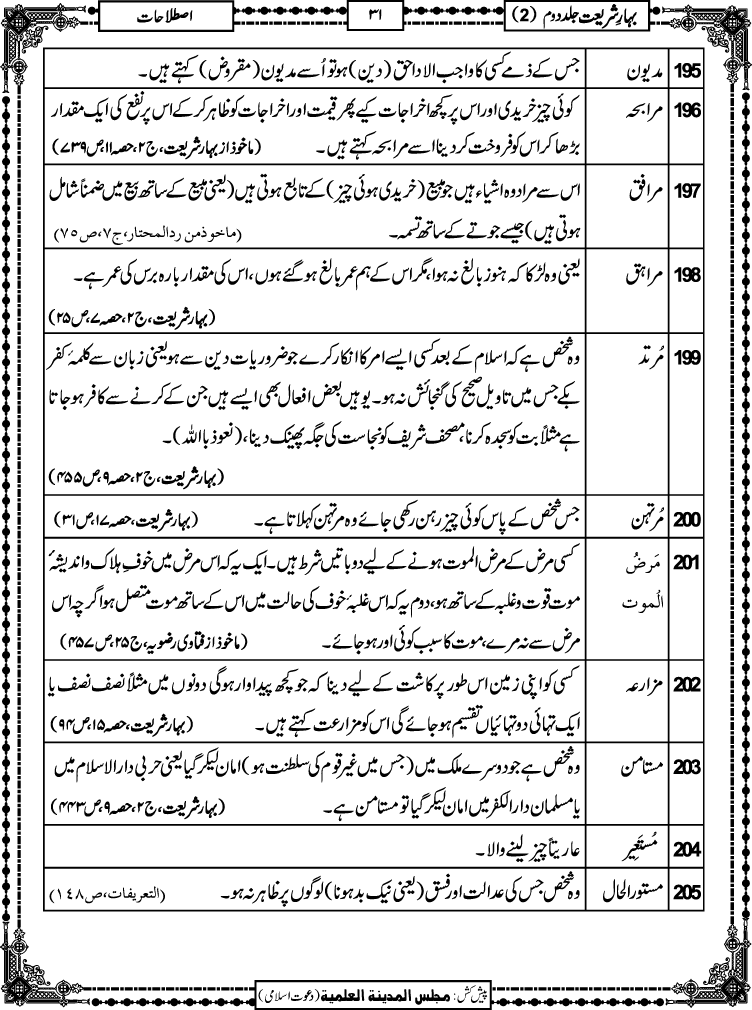 بہارِ شریعت جلد دوم (2)
۳۱
اصطلاحات
195 مدیون جس کے ذمے کسی کا واجب الادا حق (دین) ہو تو اُسے مدیون (مقروض) کہتے ہیں۔
196 مرابحہ کوئی چیز خریدی اور اس پر کچھ اخراجات کیے پھر قیمت اور اخراجات کو ظاہر کر کے اس پر نفع کی ایک مقدار
بڑھا کر اس کو فروخت کر دینا اسے مرابحہ کہتے ہیں۔ (ماخوذ از بہار شریعت، ج۲، حصہ۱۱، ص۷۳۹)
197 مرافق اس سے مراد وہ اشیاء ہیں جو مبیع (خریدی ہوئی چیز) کے تابع ہوتی ہیں (یعنی مبیع کے ساتھ بیع میں ضمناً شامل
ہوتی ہیں) جیسے جوتے کے ساتھ تسمہ۔ (ماخوذ من ردالمحتار، ج۷، ص۷۵)
198 مراہق یعنی وہ لڑکا کہ ہنوز بالغ نہ ہوا، مگر اس کے ہم عمر بالغ ہو گئے ہوں، اس کی مقدار بارہ برس کی عمر ہے۔
(بہار شریعت، ج۲، حصہ۷، ص۲۵)
199 مُرتَد وہ شخص ہے کہ اسلام کے بعد کسی ایسے امر کا انکار کرے جو ضروریات دین سے ہو یعنی زبان سے کلمۂ کفر
بکے جس میں تاویل صحیح کی گنجائش نہ ہو۔ یوہیں بعض افعال بھی ایسے ہیں جن کے کرنے سے کافر ہو جاتا
ہے مثلاً بت کو سجدہ کرنا، مصحف شریف کو نجاست کی جگہ پھینک دینا، (نعوذ باللہ)۔
(بہار شریعت، ج۲، حصہ۹، ص۴۵۵)
200 مُرتہن جس شخص کے پاس کوئی چیز رہن رکھی جائے وہ مرتہن کہلاتا ہے۔ (بہار شریعت، حصہ۱۷، ص۳۱)
201 مَرضُ کسی مرض کے مرض الموت ہونے کے لیے دو باتیں شرط ہیں۔ ایک یہ کہ اس مرض میں خوفِ ہلاک و اندیشۂ
الْموت موت قوت و غلبہ کے ساتھ ہو، دوم یہ کہ اس غلبۂ خوف کی حالت میں اس کے ساتھ موت متصل ہو اگرچہ اس
مرض سے نہ مرے، موت کا سبب کوئی اور ہو جائے۔ (ماخوذ از فتاوی رضویہ، ج۲۵، ص۴۵۷)
202 مزارعہ کسی کو اپنی زمین اس طور پر کاشت کے لیے دینا کہ جو کچھ پیداوار ہو گی دونوں میں مثلاً نصف نصف یا
ایک تہائی دو تہائیاں تقسیم ہو جائے گی اس کو مزارعت کہتے ہیں۔ (بہار شریعت، حصہ۱۵، ص۹۴)
203 مستامن وہ شخص ہے جو دوسرے ملک میں (جس میں غیر قوم کی سلطنت ہو) امان لیکر گیا یعنی حربی دار الاسلام میں
یا مسلمان دار الکفر میں امان لیکر گیا تو مستامن ہے۔ (بہار شریعت، ج۲، حصہ۹، ص۴۴۳)
204 مُستَعِیر عاریتاً چیز لینے والا۔
205 مستور الحال وہ شخص جس کی عدالت اور فسق (یعنی نیک بد ہونا) لوگوں پر ظاہر نہ ہو۔ (التعریفات، ص۱۴۸)
پیش کش: مجلس المدینۃ العلمیۃ (دعوت اسلامی)